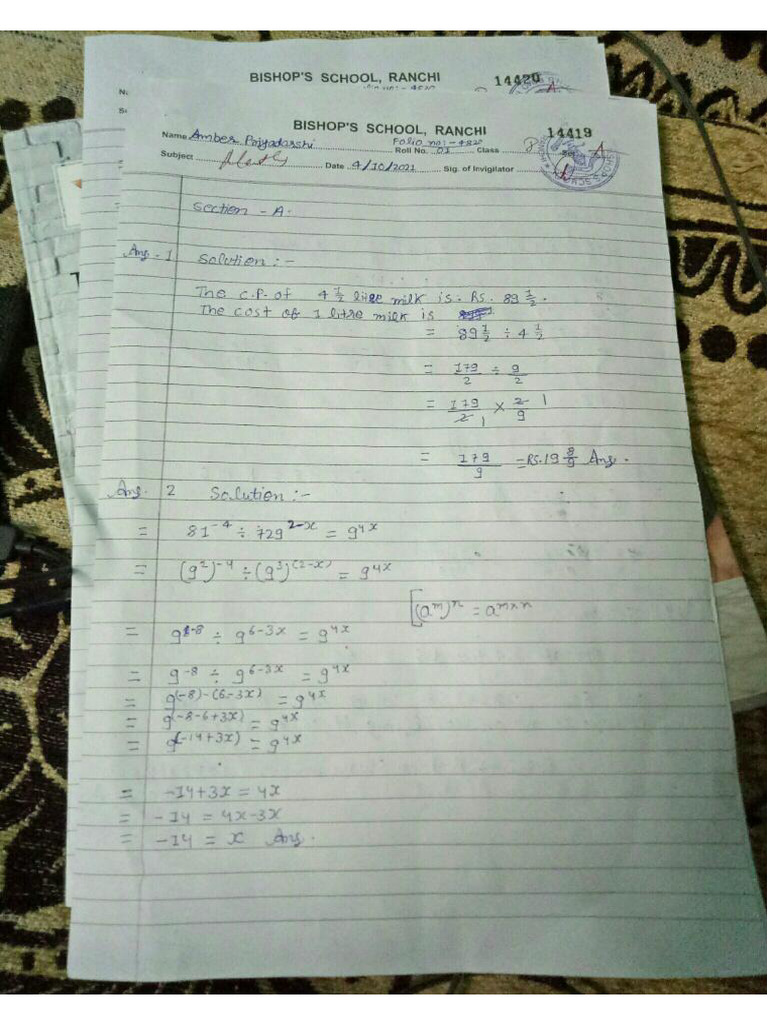 BISHOP'S SCHOOL, RANCHI 14420
BISHOP'S SCHOOL, RANCHI 14419
Name Amber Priyadarshi Folio no:- 482 Roll No. 01 Class 8 Sec. A
Subject Date 4/10/2021 Sig. of Invigilator
Section - A.
Ans. 1 Solution :-
The C.P. of 4 1/2 litre milk is. Rs. 89 1/2.
The cost of 1 litre milk is
= 89 1/2 ÷ 4 1/2
= 179/2 ÷ 9/2
= 179/2 1 × 2/9 1
= 179/9 = Rs. 19 8/9 Ans.
Ans. 2 Solution :-
= 81^-4 ÷ 729^2-x = 9^4x
= (9^2)^-4 ÷ (9^3)^(2-x) = 9^4x
[(a^m)^n = a^m×n
= 9^-8 ÷ 9^6-3x = 9^4x
= 9^-8 ÷ 9^6-3x = 9^4x
= 9^(-8)-(6-3x) = 9^4x
= 9^(-8-6+3x) = 9^4x
= 9^(-14+3x) = 9^4x
= -14+3x = 4x
= -14 = 4x-3x
= -14 = x Ans.